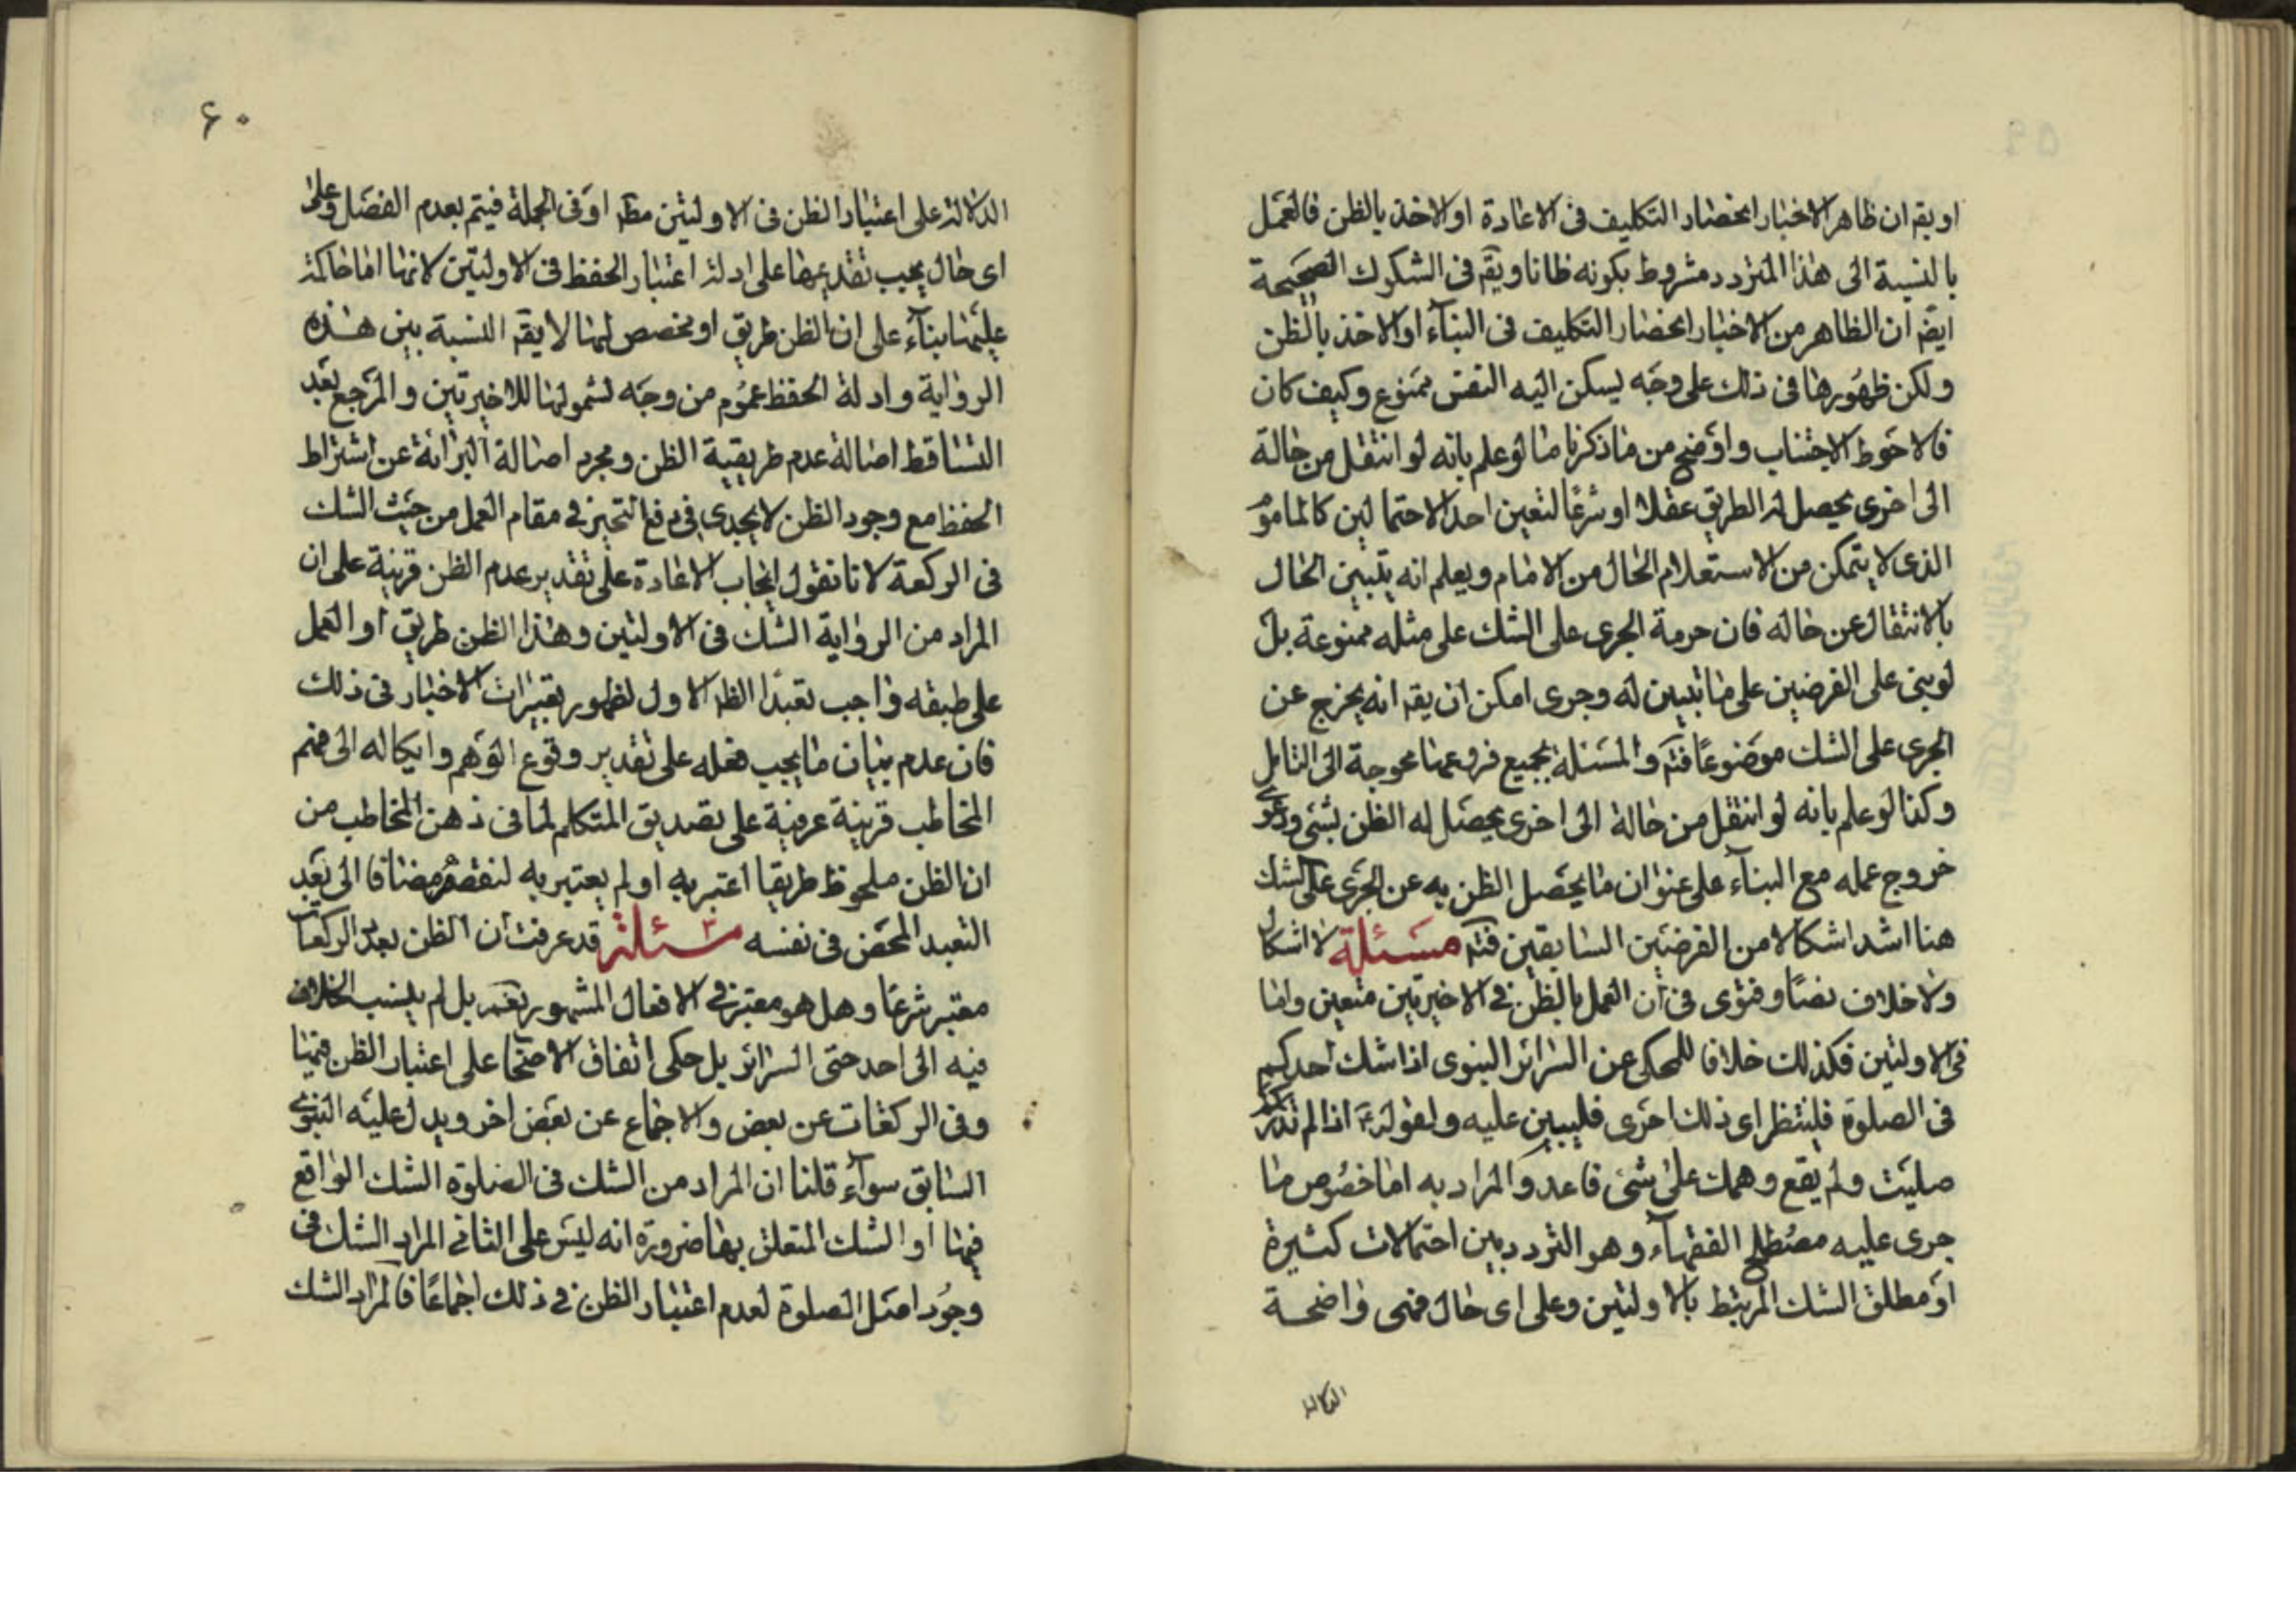 او يقم ان ظاهر الاخبار انحصار التكليف فى الاعادة او الاخذ بالظن فالعمل
بالنسبة الى هذا المتردد مشروط بكونه ظانا ويقم فى الشكوك الصحيحة
ايضم ان الظاهر من الاخبار انحصار التكليف فى البنآء او الاخذ بالظن
ولكن ظهورها فى ذلك على وجه ليسكن اليه النفس ممنوع وكيف كان
فالاحوط الاجتناب واوضح من ما ذكرنا ما لو علم بانه لو انتقل من حالة
الى اخرى يحصل له الطريق عقلا او شرعًا لتعين احد الاحتمالين كالمامو
الذى لا يتمكن من الاستعلام الحال من الامام ويعلم انه يتبين الحال
بالانتقال عن حاله فان حرمة الجرى على الشك على مثله ممنوعة بل
لو بنى على الفرضين على ما تبين له وجرى امكن ان يقم انه يخرج عن
الجرى على الشك موضوعًا فتم والمسئلة بجميع فروعها محوجة الى التامل
وكذا لو علم بانه لو انتقل من حالة الى اخرى يحصل له الظن بشئ ودعوى
خروج عمله مع البنآء على عنوان ما يحصل الظن به عن الجرى على الشك
هنا اشد اشكالا من الفرضين السابقين فتم مسئلة لا اشكال
ولا خلاف نصًا وفتوى فى ان العمل بالظن فى الاخيرتين متعين واما
فى الاولتين فكذلك خلافا للمحكى عن السرائر النبوى اذا شك احدكم
فى الصلوة فلينظر اى ذلك احرى فليبين عليه ولقوله ع اذا لم تدر كم
صليت ولم يقع وهمك على شئ فاعد والمراد به اما خصوص ما
جرى عليه مصطلح الفقهآء وهو التردد بين احتمالات كثيرة
او مطلق الشك المرتبط بالاولتين وعلى اى حال فهى واضحة
الدلالة
۶۰
الدلالة على اعتبار الظن فى الاولتين مطلقا او فى الجملة فيتم بعدم الفصل وعلى
اى حال يجب تقديمها على ادلة اعتبار الحفظ فى الاولتين لانها اما حاكمة
عليها بنآء على ان الظن طريق او مخصص لها لا يقم النسبة بين هذه
الرواية وادلة الحفظ عموم من وجه لشمولها للاخيرتين والمرجع بعد
التساقط اصالة عدم طريقية الظن ومجرد اصالة البرائة عن اشتراط
الحفظ مع وجود الظن لا يجدى فى دفع التحيز فى مقام العمل من حيث الشك
فى الركعة لانا نقول ايجاب الاعادة على تقدير عدم الظن قرينة على ان
المراد من الرواية الشك فى الاولتين وهذا الظن طريق او العمل
على طبقه واجب تعبدا الظ الاول لظهور تعبيرات الاخبار فى ذلك
فان عدم بيان ما يجب فعله على تقدير وقوع الوهم وايكاله الى فهم
المخاطب قرينة عرفية على تصديق المتكلم لما فى ذهن المخاطب من
ان الظن ملحوظ طريقا اعتبر به او لم يعتبر به لنقصه مضافا الى بعد
التعبد المحض فى نفسه مسئلة قد عرفت ان الظن بعدد الركعات
معتبر شرعا وهل هو معتبر فى الافعال المشهور نعم بل لم ينسب الخلاف
فيه الى احد حتى السرائر بل حكى اتفاق الاصحا على اعتبار الظن فيها
وفى الركعات عن بعض والاجماع عن بعض اخر ويدل عليه النبوى
السابق سوآء قلنا ان المراد من الشك فى الصلوة الشك الواقع
فيها او الشك المتعلق بها ضرورة انه ليس على الثانى المراد الشك فى
وجود اصل الصلوة لعدم اعتبار الظن فى ذلك اجماعًا فالمراد الشك